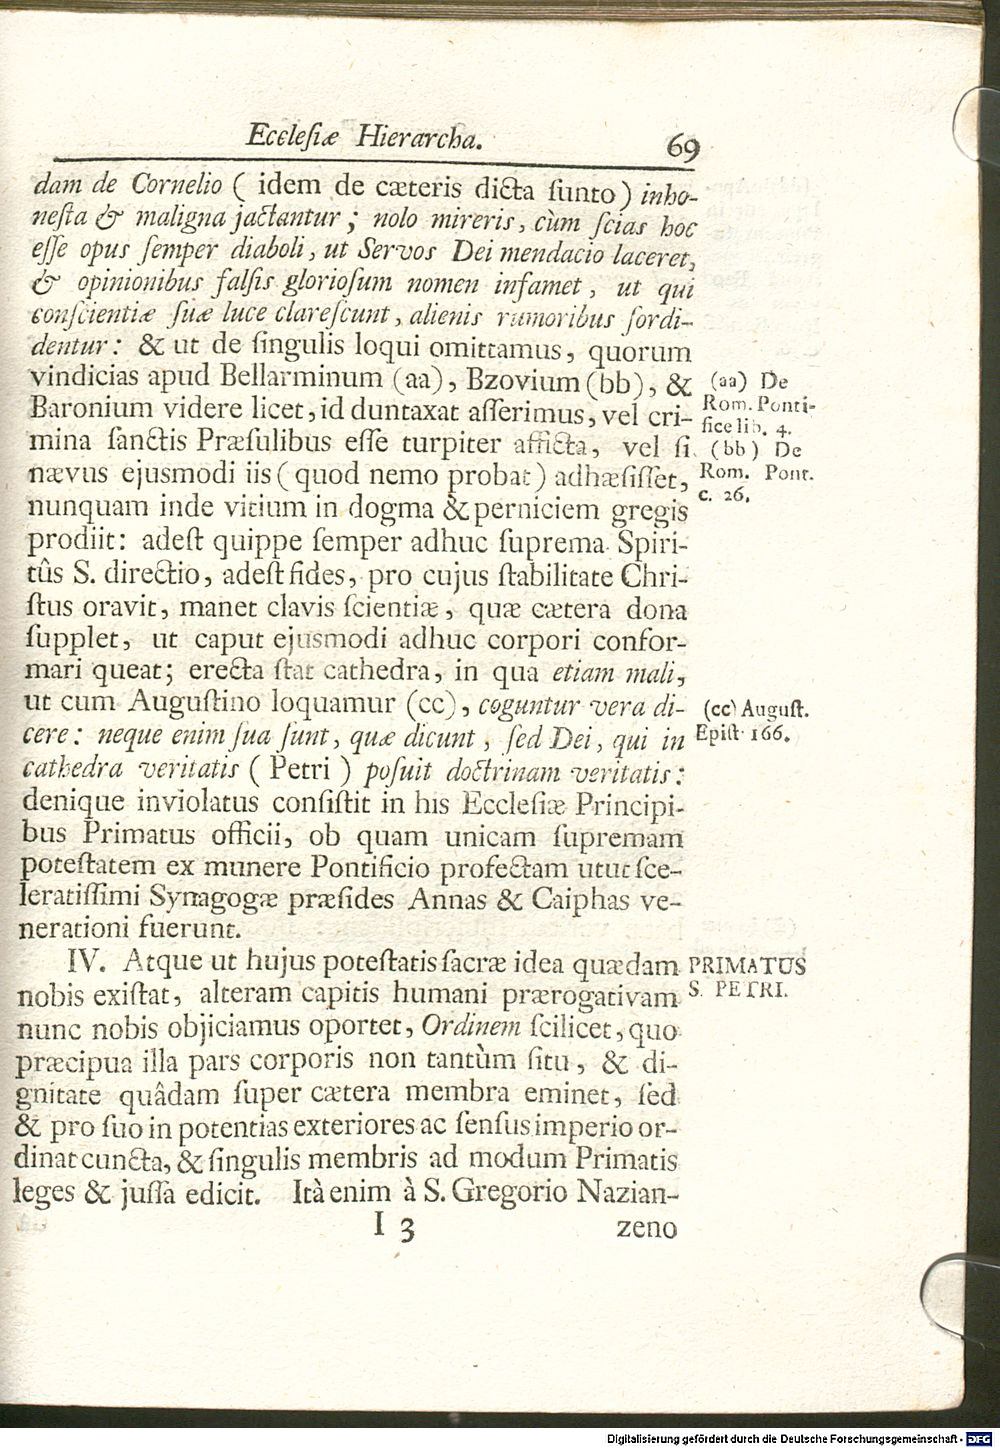 Ecclesiæ Hierarcha. 69
dam de Cornelio ( idem de cæteris dicta sunto ) inho-
nesta & maligna jactantur ; nolo mireris, cùm scias hoc
esse opus semper diaboli, ut Servos Dei mendacio laceret,
& opinionibus falsis gloriosum nomen infamet, ut qui
conscientiæ suæ luce clarescunt, alienis rumoribus sordi-
dentur: & ut de singulis loqui omittamus, quorum
vindicias apud Bellarminum (aa), Bzovium (bb), &
Baronium videre licet, id duntaxat asserimus, vel cri-
mina sanctis Præsulibus esse turpiter afficta, vel si
nævus ejusmodi iis ( quod nemo probat ) adhæsisset,
nunquam inde vitium in dogma & perniciem gregis
prodiit: adest quippe semper adhuc suprema Spiri-
tûs S. directio, adest fides, pro cujus stabilitate Chri-
stus oravit, manet clavis scientiæ, quæ cætera dona
supplet, ut caput ejusmodi adhuc corpori confor-
mari queat; erecta stat cathedra, in qua etiam mali,
ut cum Augustino loquamur (cc), coguntur vera di-
cere: neque enim sua sunt, quæ dicunt, sed Dei, qui in
cathedra veritatis ( Petri ) posuit doctrinam veritatis:
denique inviolatus consistit in his Ecclesiæ Principi-
bus Primatus officii, ob quam unicam supremam
potestatem ex munere Pontificio profectam utut sce-
leratissimi Synagogæ præsides Annas & Caiphas ve-
nerationi fuerunt.
IV. Atque ut hujus potestatis sacræ idea quædam
nobis existat, alteram capitis humani prærogativam
nunc nobis objiciamus oportet, Ordinem scilicet, quo
præcipua illa pars corporis non tantùm situ, & di-
gnitate quâdam super cætera membra eminet, sed
& pro suo in potentias exteriores ac sensus imperio or-
dinat cuncta, & singulis membris ad modum Primatis
leges & jussa edicit. Ità enim à S. Gregorio Nazian-
I 3 zeno
(aa) De
Rom. Ponti-
fice lib. 4.
(bb) De
Rom. Pont.
c. 26.
(cc) August.
Epist. 166.
PRIMATUS
S. PETRI.
Digitalisierung gefördert durch die Deutsche Forschungsgemeinschaft - DFG